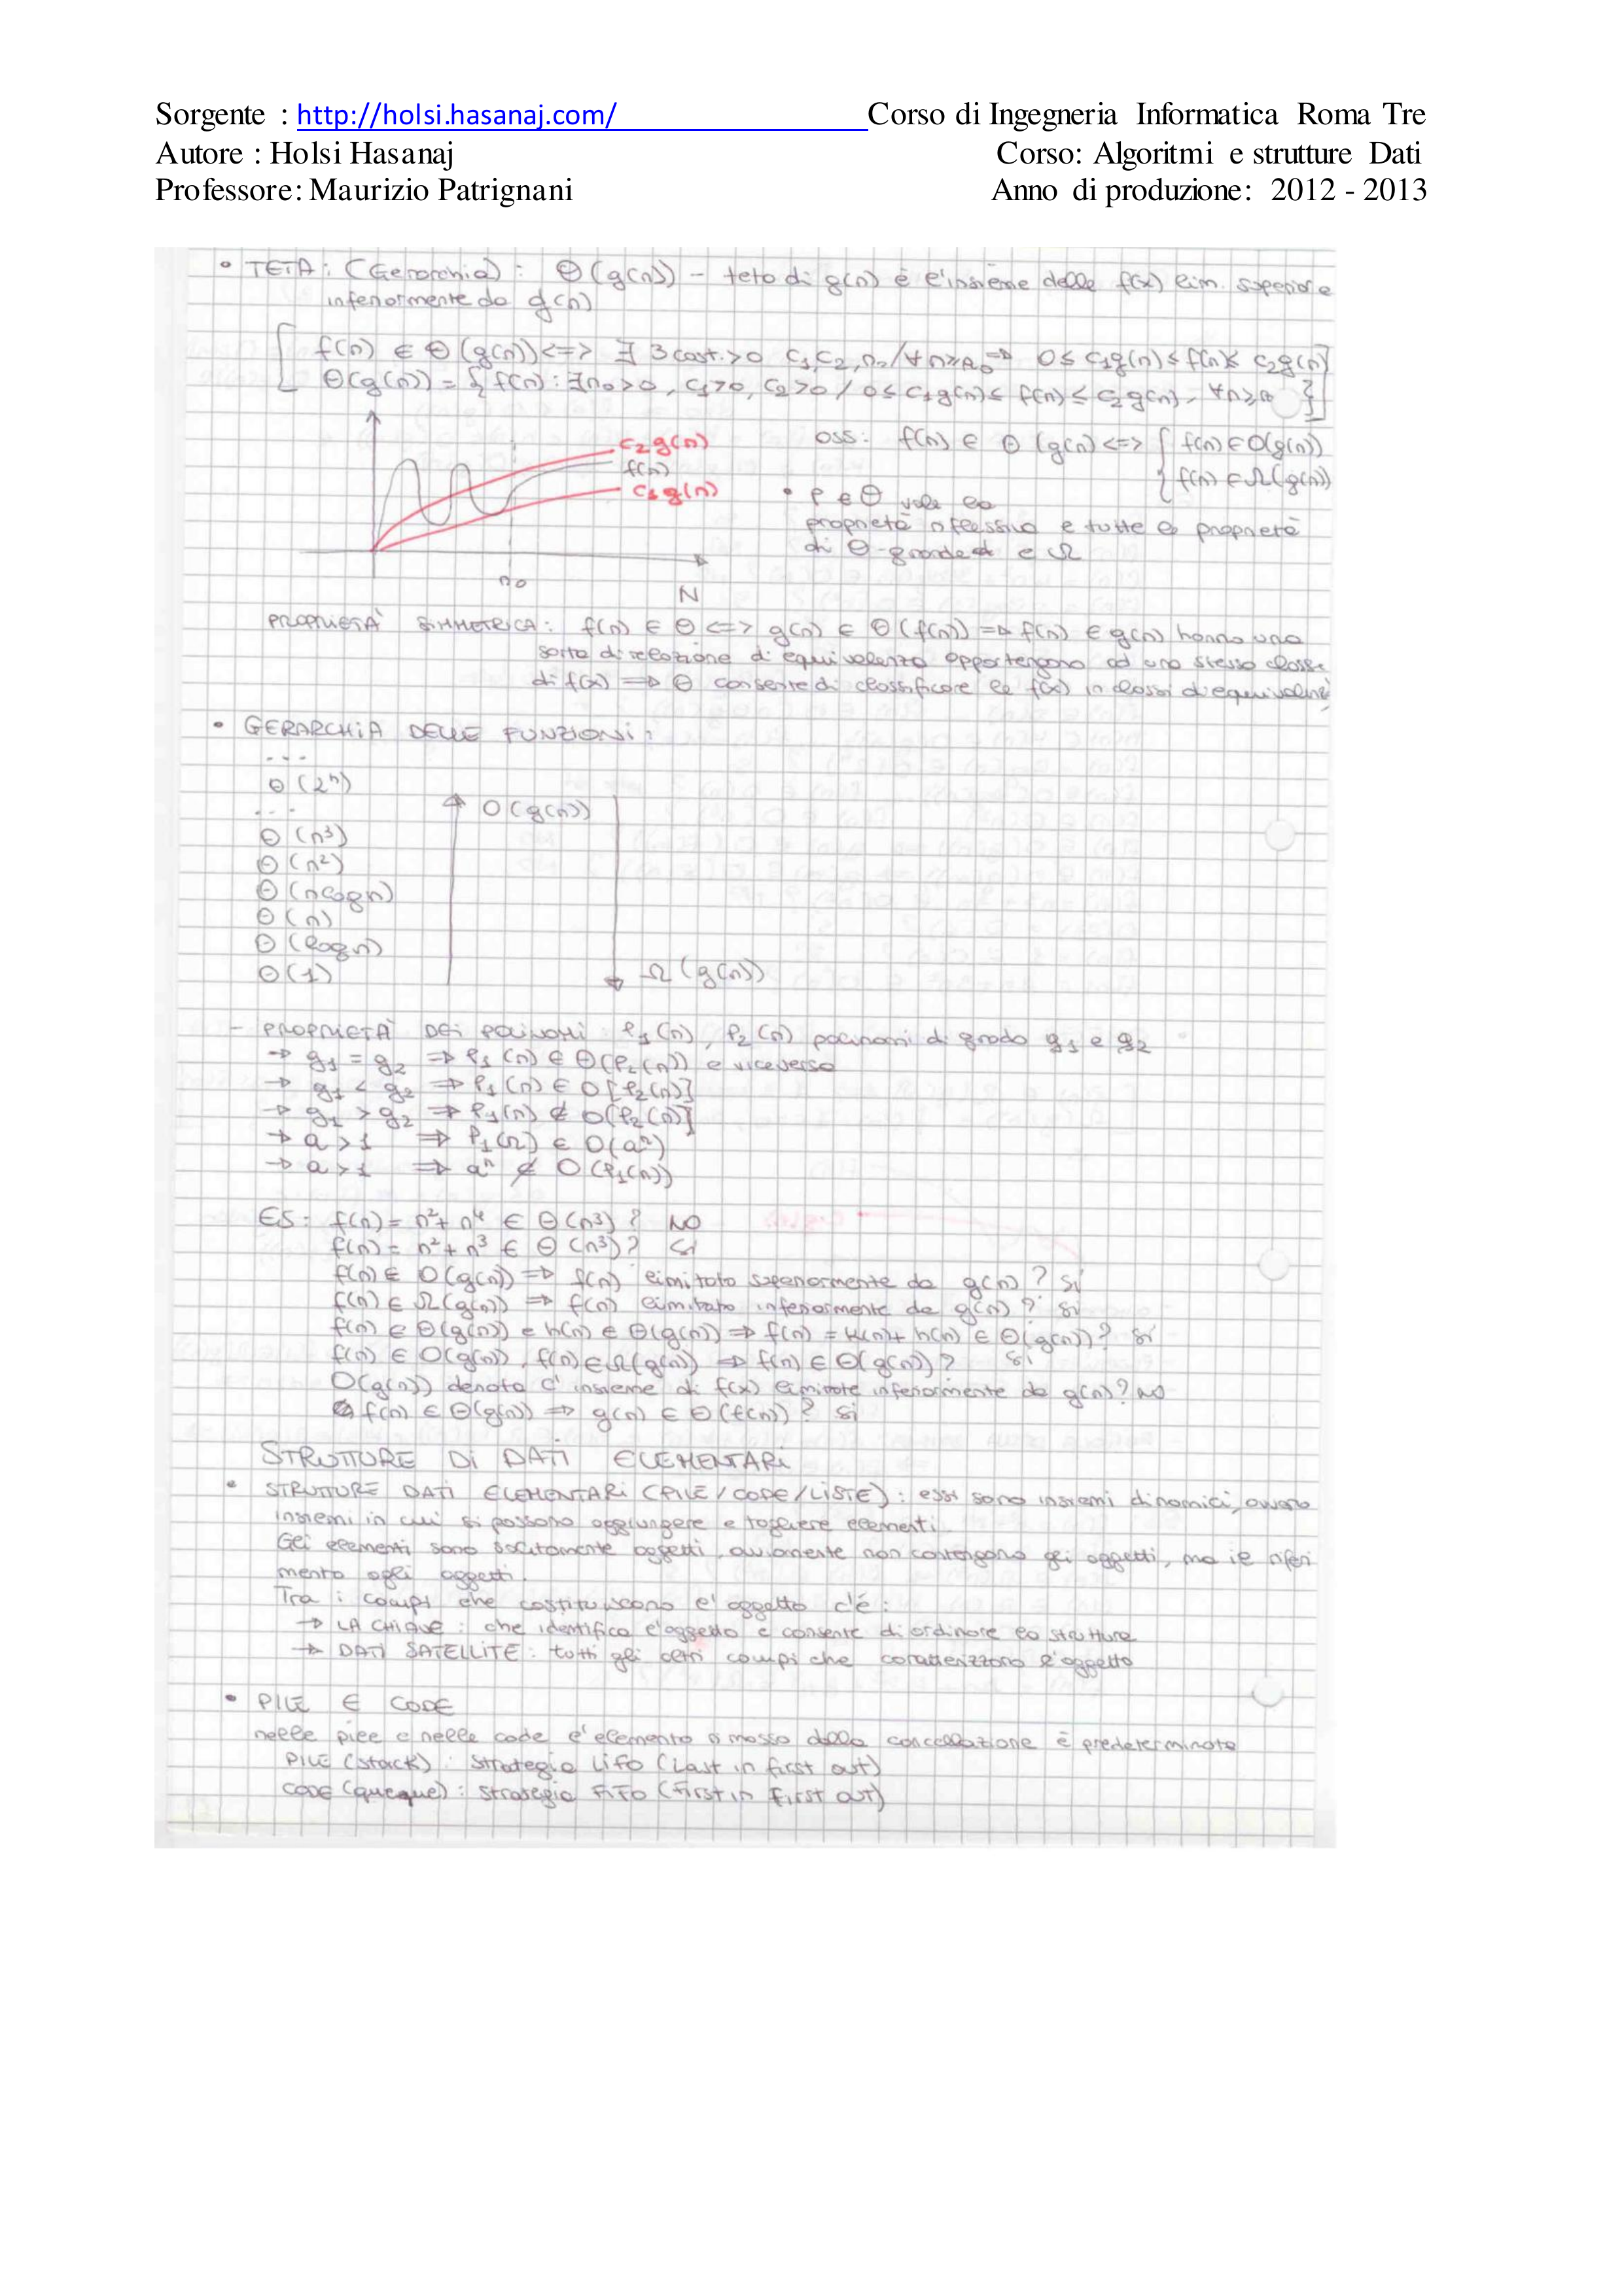 Sorgente : http://holsi.hasanaj.com/ Corso di Ingegneria Informatica Roma Tre
Autore : Holsi Hasanaj Corso: Algoritmi e strutture Dati
Professore: Maurizio Patrignani Anno di produzione: 2012 - 2013
• TETA: (Gerarchia): Θ(g(n)) - teta di g(n) è l'insieme delle f(x) lim. superior e
inferiormente da g(n)
f(n) ∈ Θ(g(n)) <=> ∃ 3 cost. >0 c1, c2, n0 / ∀ n≥n0 => 0≤ c1g(n) ≤ f(n) ≤ c2g(n)
Θ(g(n)) = { f(n) : ∃ n0>0, c1>0, c2>0 / 0≤ c1g(n) ≤ f(n) ≤ c2g(n), ∀n≥n0 }
c2g(n)
f(n)
c1g(n)
n0
N
oss: f(n) ∈ Θ(g(n) <=> { f(n) ∈ O(g(n))
{ f(n) ∈ Ω(g(n))
• Θ vale la
proprietà riflessiva e tutte le proprietà
di Θ-grande e Ω
PROPRIETÀ SIMMETRICA: f(n) ∈ Θ <=> g(n) ∈ Θ(f(n)) => f(n) e g(n) hanno una
sorta di relazione di equivalenza appartengono ad una stessa classe
di f(x) => Θ consente di classificare le f(x) in classi di equivalenza
• GERARCHIA DELLE FUNZIONI:
...
Θ(2ⁿ)
...
Θ(n³)
Θ(n²)
Θ(nlogn)
Θ(n)
Θ(logn)
Θ(1)
O(g(n))
Ω(g(n))
- PROPRIETÀ DEI POLINOMI P1(n), P2(n) polinomi di grado g1 e g2
→ g1 = g2 => P1(n) ∈ Θ(P2(n)) e viceversa
→ g1 < g2 => P1(n) ∈ O[P2(n)]
→ g1 > g2 => P1(n) ∉ O[P2(n)]
→ a>1 => P1(n) ∈ O(aⁿ)
→ a>1 => aⁿ ∉ O(P1(n))
ES: f(n) = n²+n⁴ ∈ Θ(n³)? NO
f(n) = n²+n³ ∈ Θ(n³)? Si
f(n) ∈ O(g(n)) => f(n) limitata superiormente da g(n)? Sì
f(n) ∈ Ω(g(n)) => f(n) limitata inferiormente da g(n)? Si
f(n) ∈ Θ(g(n)) e h(n) ∈ Θ(g(n)) => f(n) = + h(n) ∈ Θ(g(n))? Sì
f(n) ∈ O(g(n)), f(n) ∈ Ω(g(n)) => f(n) ∈ Θ(g(n))? Si
O(g(n)) denota l'insieme di f(x) limitate inferiormente da g(n)? NO
f(n) ∈ Θ(g(n)) => g(n) ∈ Θ(f(n))? Si
STRUTTURE DI DATI ELEMENTARI
• STRUTTURE DATI ELEMENTARI (PILE/CODE/LISTE): essi sono insiemi dinamici, ovvero
insiemi in cui si possono aggiungere e togliere elementi.
Gli elementi sono solitamente oggetti, ovviamente non contengono gli oggetti, ma il riferi
mento agli oggetti.
Tra i campi che costituiscono l'oggetto c'è:
→ LA CHIAVE: che identifica l'oggetto e consente di ordinare la struttura
→ DATI SATELLITE: tutti gli altri campi che caratterizzano l'oggetto
• PILE E CODE
nelle pile e nelle code l'elemento rimosso dalla cancellazione è predeterminato
PILE (stack): strategia LIFO (Last in first out)
CODE (queque): strategia FIFO (First in First out)